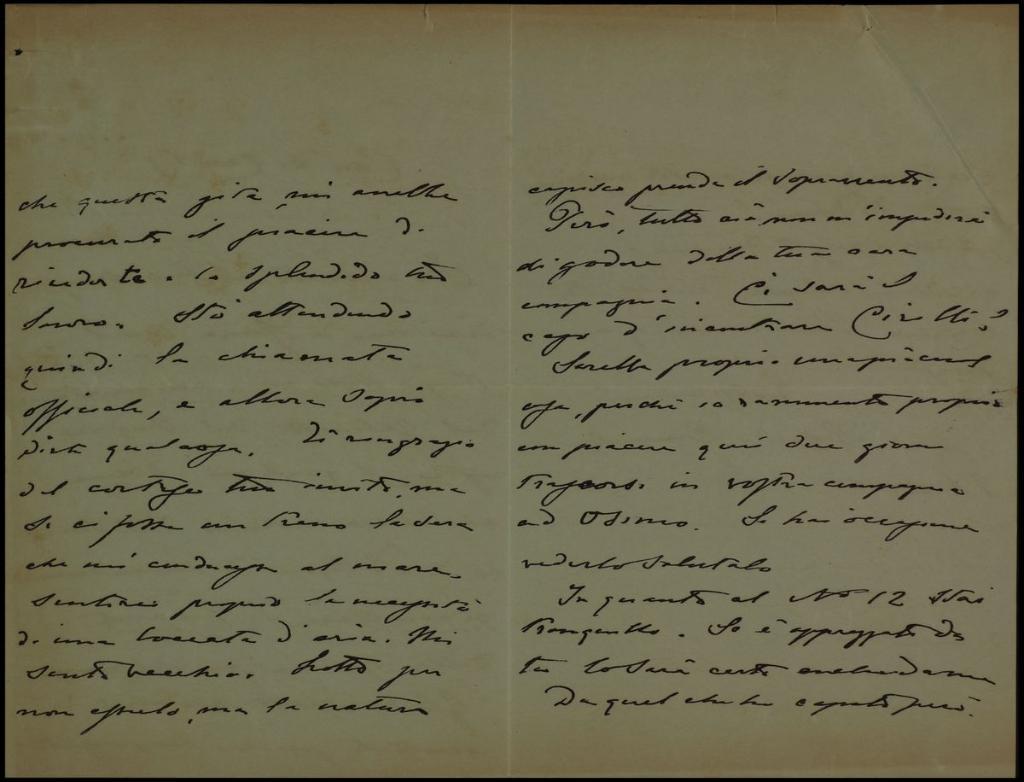 che questa gita mi avrebbe
procurato il piacere di
rivederte e lo splendido tuo
lavoro. Stò attendendo
quindi la chiamata
officiale, e allora saprò
dirti qualcosa. Ti ringrazio
del cortese tuo invito, ma
se ci fosse un treno la sera
che mi conducesse al mare,
sentirei proprio la necessità
di una boccata d'aria. Mi
sento vecchio. Lotto per
non esserlo, ma la natura
capisco prende il sopravvento.
Però, tutto ciò non m'impedirà
di godere della tua cara
compagnia. Ci sarà il
caso d'incontrare Cirilli?
Sarebbe proprio una piacevole
cosa, perchè io rammento proprio
con piacere quei due giorni
trascorsi in vostra compagnia
ad Osimo. Se hai occasione
vederlo salutalo
In quanto al No 12 stai
tranquillo. Se è appoggiato da
te lo sarà certo anche da me
Da quel che ho capito però.